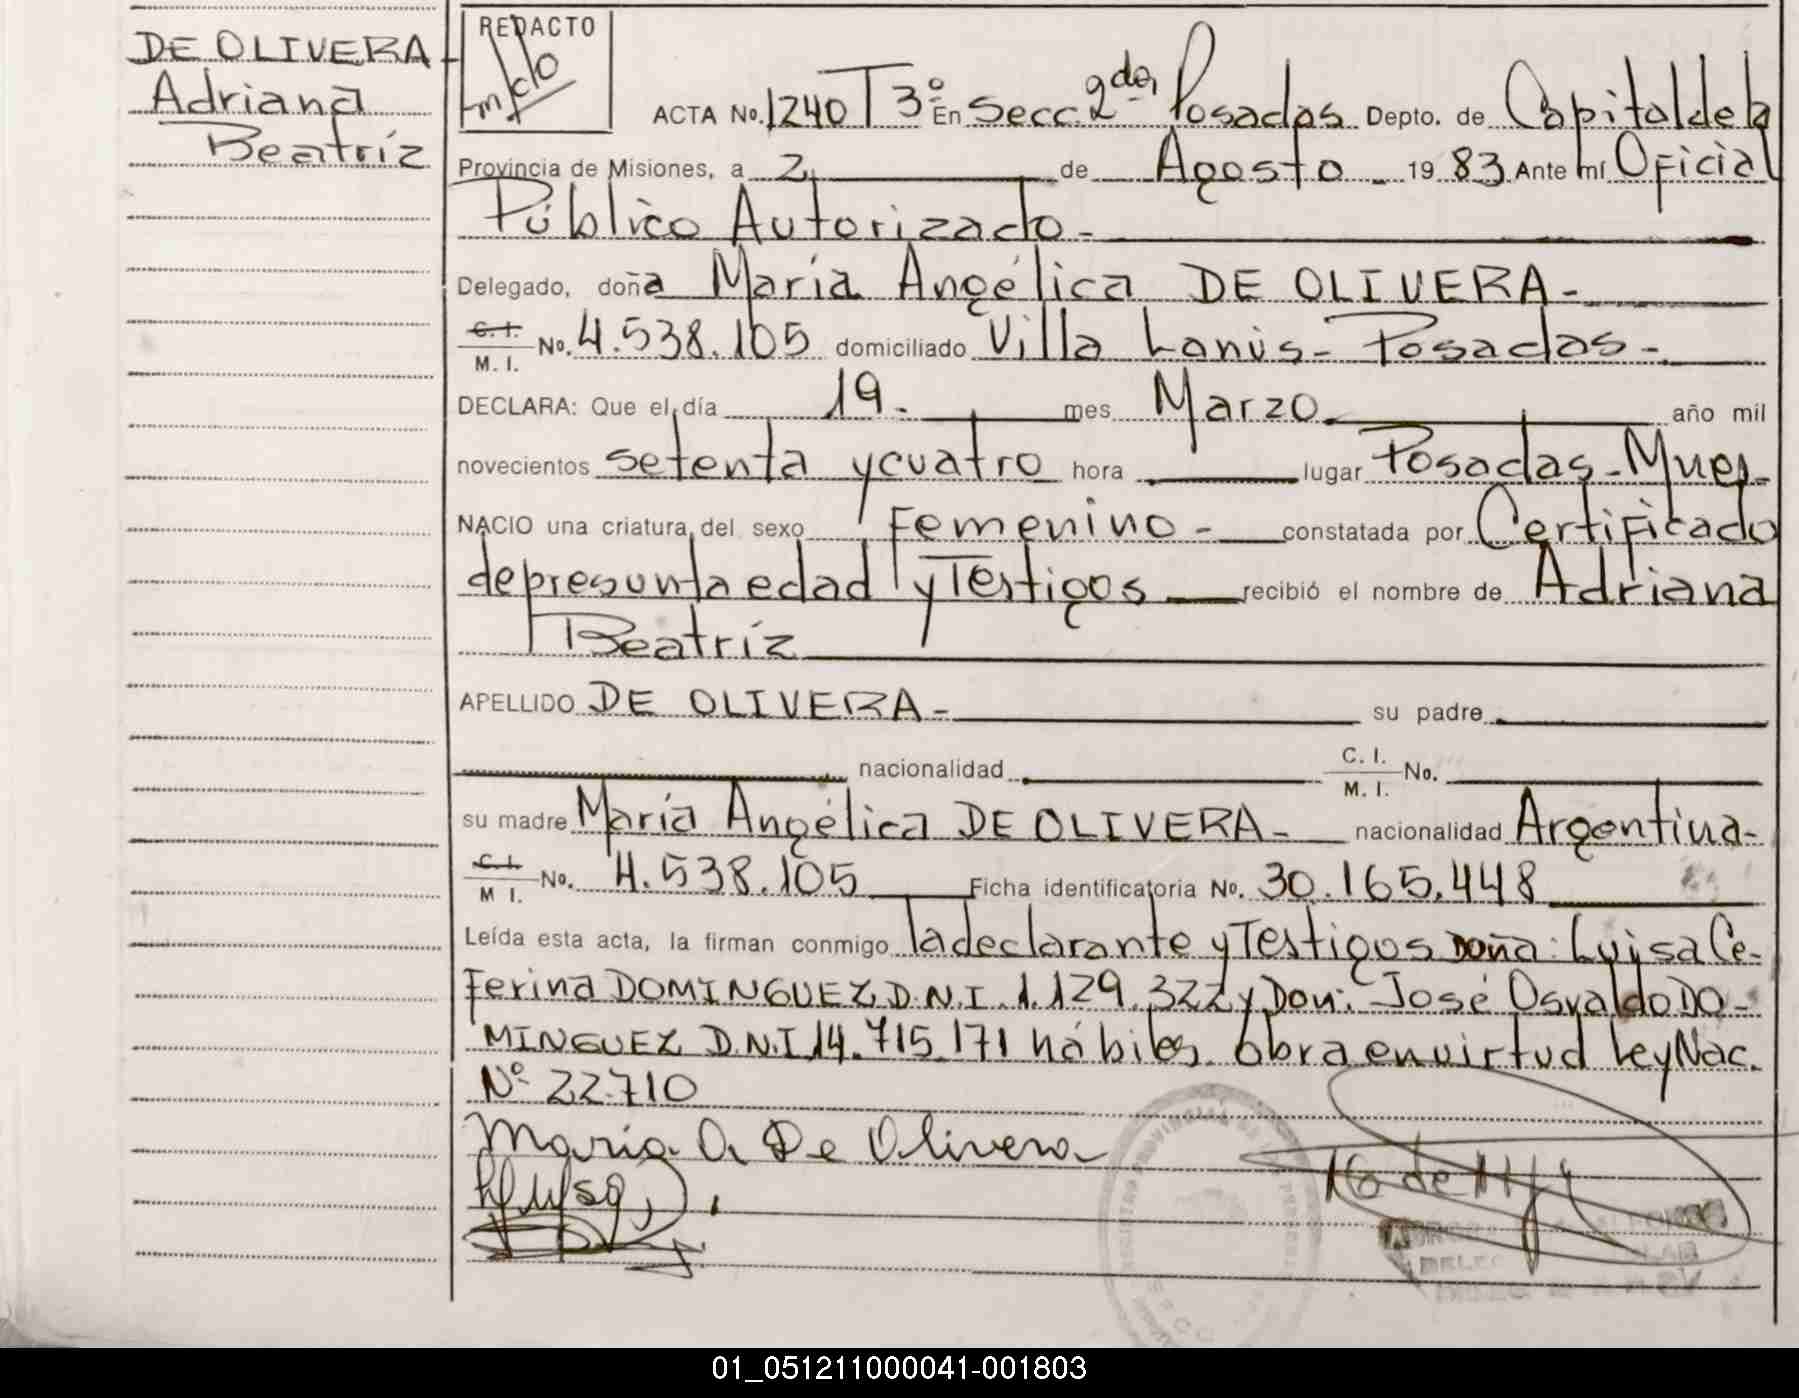 DE OLIVERA
Adriana
Beatríz
REDACTO
ACTA No. 1240 T 3º En Secc. 2da Posadas Depto. de Capital de la
Provincia de Misiones, a 2 de Agosto 19 83 Ante mí Oficial
Público Autorizado.-
Delegado, doña María Angélica DE OLIVERA-
C.I. M. I. No. 4.538.105 domiciliado Villa Lanús- Posadas-
DECLARA: Que el día 19- mes Marzo año mil
novecientos setenta y cuatro hora lugar Posadas-Mnes-
NACIO una criatura del sexo Femenino- constatada por Certificado
de presunta edad y Testigos recibió el nombre de Adriana
Beatríz
APELLIDO DE OLIVERA- su padre
nacionalidad C. I. M. I. No.
su madre María Angélica DE OLIVERA- nacionalidad Argentina-
C.I. M I. No. 4.538.105 Ficha identificatoria No. 30.165.448
Leída esta acta, la firman conmigo la declarante y Testigos Doña: Luisa Ce-
ferina DOMINGUEZ D.N.I. 1.129.322 y Don: José Osvaldo DO-
MINGUEZ D.N.I 14.715.171 hábiles. Obra en virtud Ley Nac.
Nº 22.710
María A De Olivera
01_051211000041-001803